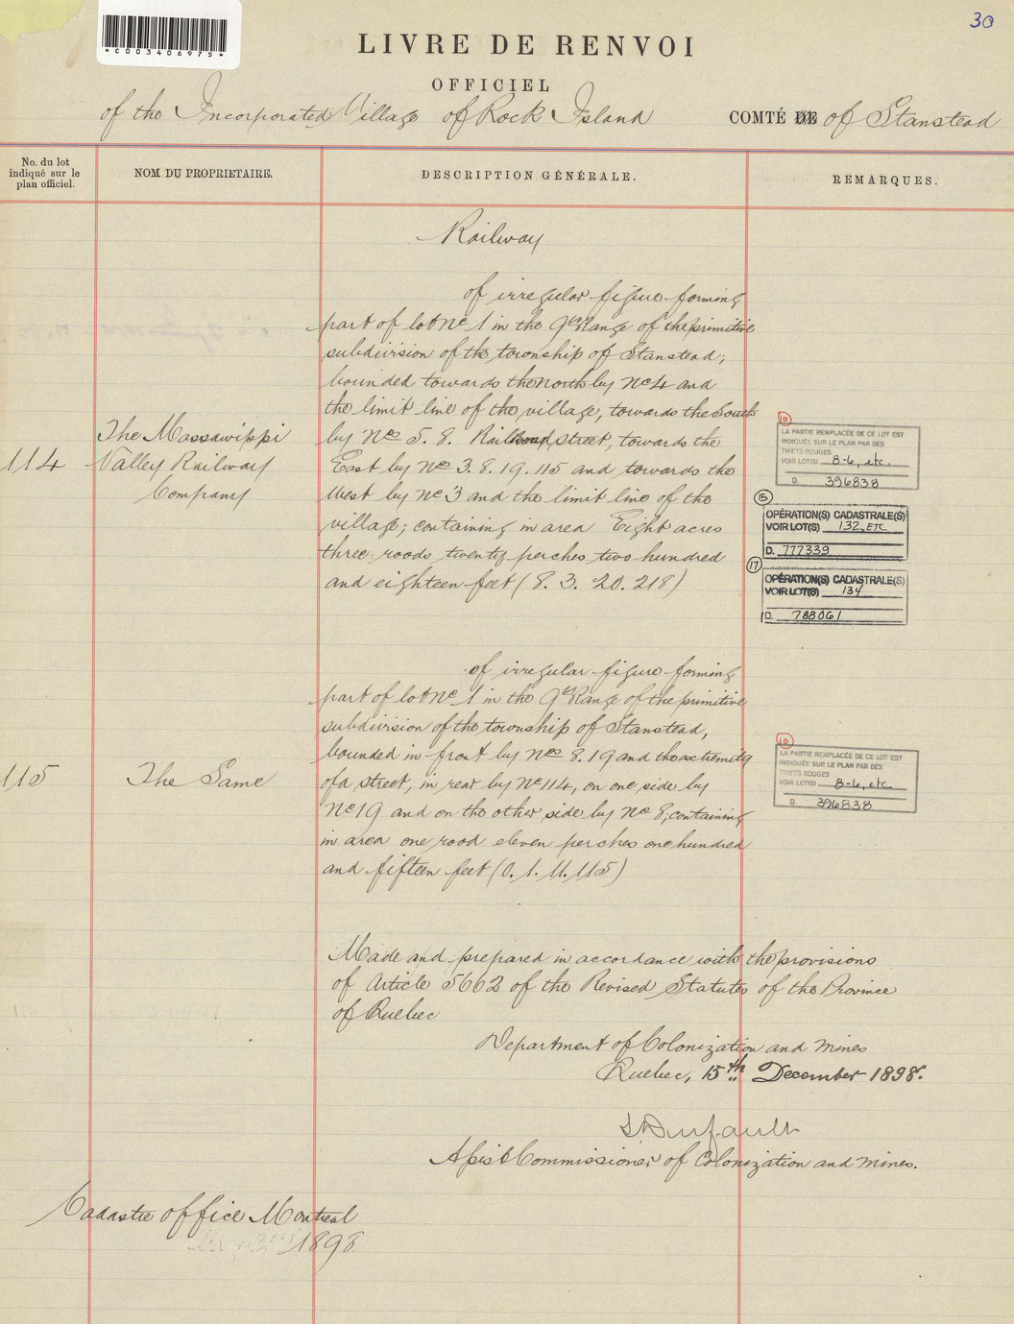 30
*C003406975*
LIVRE DE RENVOI
OFFICIEL
of the Incorporated Village of Rock Island COMTÉ DE of Stanstead
No. du lot
indiqué sur le
plan officiel.
NOM DU PROPRIETAIRE.
DESCRIPTION GÉNÉRALE.
REMARQUES.
Railway
114
The Massawippi
Valley Railway
Company
of irregular figure forming
part of lot No 1 in the 9th Range of the primitive
subdivision of the township of Stanstead;
bounded towards the north by No 4 and
the limit line of the village, towards the South
by Nos 5. 8. Railroad street, towards the
East by No 3. 8. 19. 115 and towards the
West by No 3 and the limit line of the
village; containing in area Eight acres
three roods twenty perches two hundred
and eighteen feet (8. 3. 20. 218)
10
LA PARTIE REMPLACÉE DE CE LOT EST
INDIQUÉE SUR LE PLAN PAR DES
TIRETS ROUGES
VOIR LOT(S) 8-6, etc.
D. 396838
15
OPÉRATION(S) CADASTRALE(S)
VOIR LOT(S) 132, ETC
D. 777339
17
OPÉRATION(S) CADASTRALE(S)
VOIR LOT(S) 134
D. 788061
115
The Same
of irregular figure forming
part of lot No 1 in the 9th Range of the primitive
subdivision of the township of Stanstead,
bounded in front by Nos 8. 19 and the extremity
of a street, in rear by No 114, on one side by
No 19 and on the other side by No 8; containing
in area one rood eleven perches one hundred
and fifteen feet (0. 1. 11. 115)
10
LA PARTIE REMPLACÉE DE CE LOT EST
INDIQUÉE SUR LE PLAN PAR DES
TIRETS ROUGES
VOIR LOT(S) 8-6, etc.
D. 396838
Made and prepared in accordance with the provisions
of Article 5662 of the Revised Statutes of the Province
of Quebec
Department of Colonization and Mines
Quebec, 15th December 1898.
Dufault
Assist Commissioner of Colonization and Mines.
Cadastre office Montreal
1898